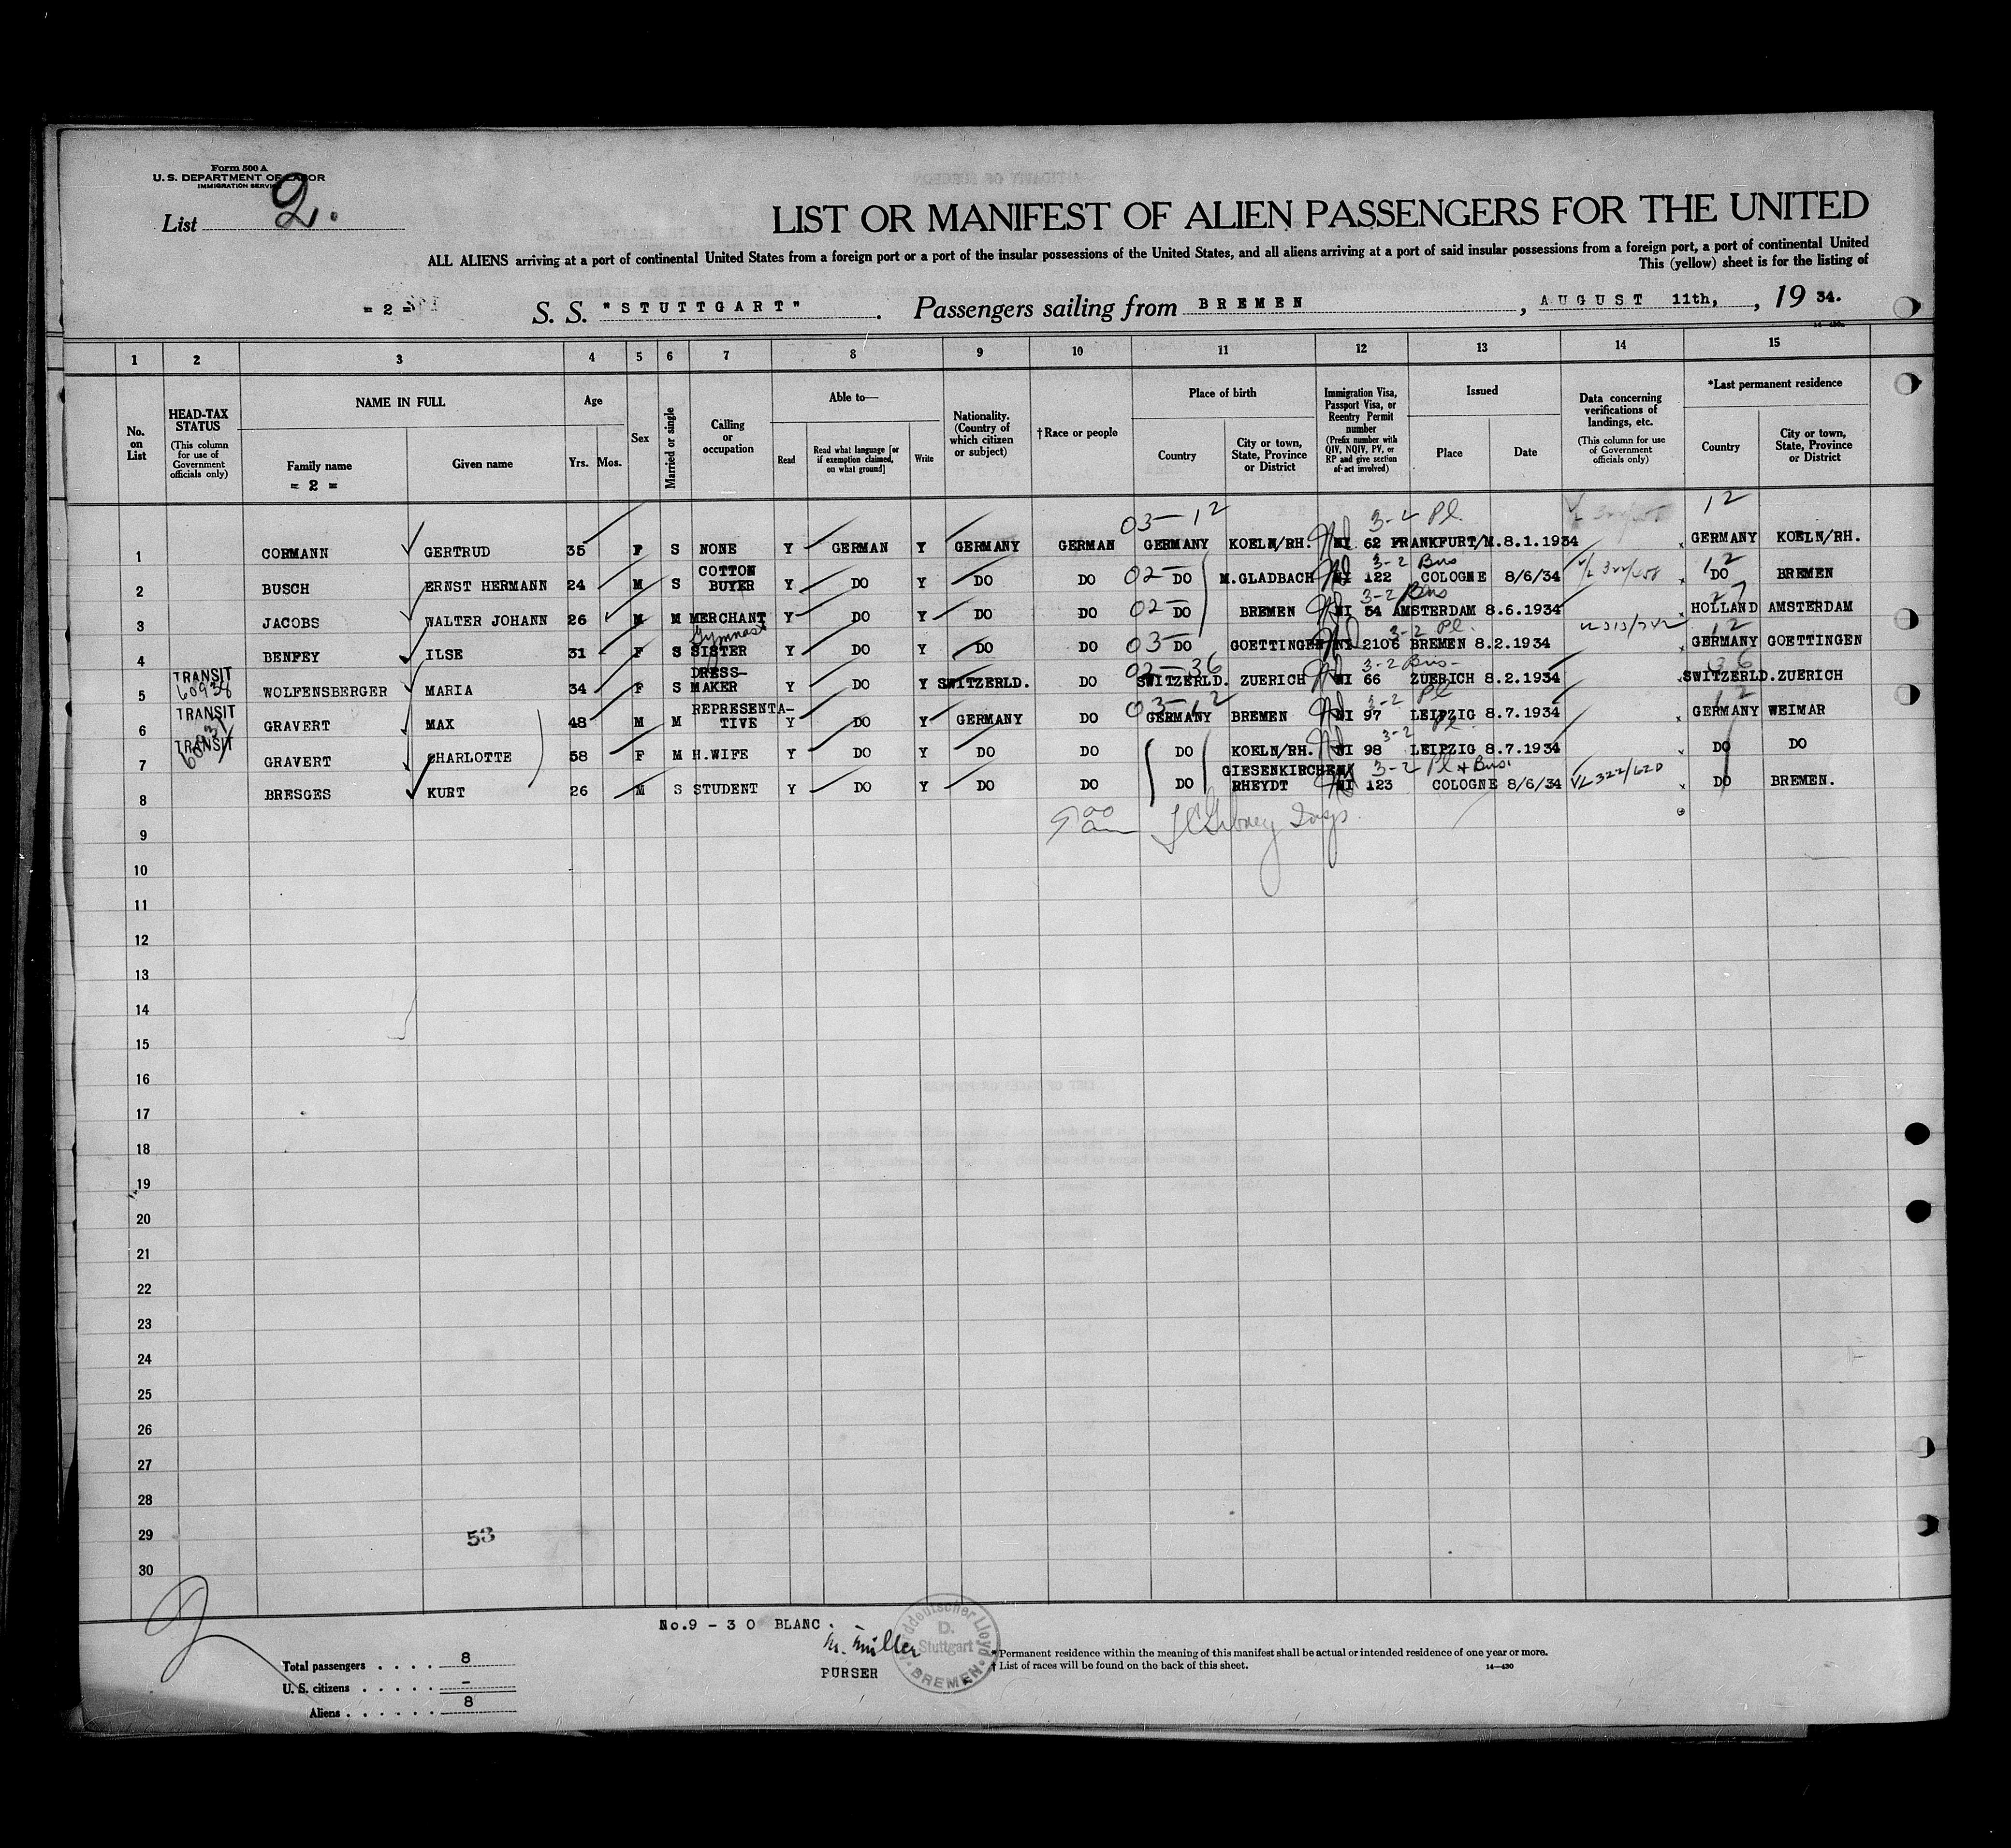 Form 500 A
U. S. DEPARTMENT OF LABOR
IMMIGRATION SERVICE
List 2.
LIST OR MANIFEST OF ALIEN PASSENGERS FOR THE UNITED
ALL ALIENS arriving at a port of continental United States from a foreign port or a port of the insular possessions of the United States, and all aliens arriving at a port of said insular possessions from a foreign port, a port of continental United
This (yellow) sheet is for the listing of
= 2 = S. S. "STUTTGART". Passengers sailing from BREMEN, AUGUST 11th, , 19 34.
1 2 3 4 5 6 7 8 9 10 11 12 13 14 15
No. on List
HEAD-TAX STATUS (This column for use of Government officials only)
NAME IN FULL
Family name
= 2 =
Given name
Age
Yrs. Mos.
Sex
Married or single
Calling or occupation
Able to—
Read
Read what language [or if exemption claimed, on what ground]
Write
Nationality. (Country of which citizen or subject)
†Race or people
Place of birth
Country
City or town, State, Province or District
Immigration Visa, Passport Visa, or Reentry Permit number (Prefix number with QIV, NQIV, PV, or RP and give section of act involved)
Issued
Place
Date
Data concerning verifications of landings, etc. (This column for use of Government officials only)
*Last permanent residence
Country
City or town, State, Province or District
03-12 3-2 Pl 12
1 CORMANN GERTRUD 35 F S NONE Y GERMAN Y GERMANY GERMAN GERMANY KOELN/RH. NI 62 FRANKFURT/M. 8.1.1934 GERMANY KOELN/RH.
02- 3-2 Bus 12
2 BUSCH ERNST HERMANN 24 M S COTTON BUYER Y DO Y DO DO DO M.GLADBACH NI 122 COLOGNE 8/6/34 DO BREMEN
02- 3-2 Bus 27
3 JACOBS WALTER JOHANN 26 M M MERCHANT Y DO Y DO DO DO BREMEN NI 54 AMSTERDAM 8.6.1934 HOLLAND AMSTERDAM
Gymnast 03- 3-2 Pl. 12
4 BENFEY ILSE 31 F S SISTER Y DO Y DO DO DO GOETTINGEN NI 2106 BREMEN 8.2.1934 GERMANY GOETTINGEN
TRANSIT 60938 02-36 3-2 Bus- 36
5 WOLFENSBERGER MARIA 34 F S DRESS-MAKER Y DO Y SWITZERLD. DO SWITZERLD. ZUERICH NI 66 ZUERICH 8.2.1934 SWITZERLD. ZUERICH
TRANSIT 03-12 3-2 Pl 12
6 GRAVERT MAX 48 M M REPRESENTA-TIVE Y DO Y GERMANY DO GERMANY BREMEN NI 97 LEIPZIG 8.7.1934 GERMANY WEIMAR
TRANSIT 3-2 Pl.
7 GRAVERT CHARLOTTE 58 F M H.WIFE Y DO Y DO DO DO KOELN/RH. NI 98 LEIPZIG 8.7.1934 DO DO
3-2 Pl + Bus.
8 BRESGES KURT 26 M S STUDENT Y DO Y DO DO DO GIESENKIRCHEN/RHEYDT NI 123 COLOGNE 8/6/34 VL 322/620 DO BREMEN.
9
10
11
12
13
14
15
16
17
18
19
20
21
22
23
24
25
26
27
28
29 53
30
No.9 - 30 BLANC.
M. Müller
PURSER
Norddeutscher Lloyd
D. Stuttgart
BREMEN
Total passengers . . . . 8
U. S. citizens . . . . . -
Aliens . . . . . . 8
* Permanent residence within the meaning of this manifest shall be actual or intended residence of one year or more.
† List of races will be found on the back of this sheet.
14—430